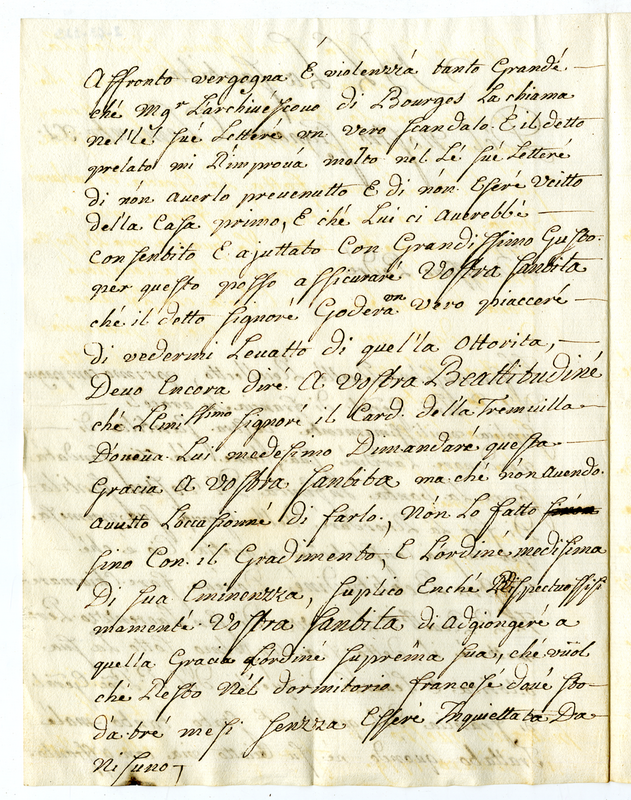 Affronto vergogna È violenzzà tanto Grandé
ché Mgr Larchivéscovo di Bourgos La chiama
nel'lé sué Letteré vn vero scandalo. È il detto
prelato mi Rimprová molto nél Lé sué Letteré
di nón averlo prevenutto E di nón Eseré Vcitto
del'la Casa primo, E ché Lui ci Averebbé
consentito E ajuttato Con Grandissimo Gusto.
per questo posso assicuraré Vostra Santita
ché il detto Signoré Goderá vn Vero piacceré
di vedermi Levatto di quel'la Ottorita,
Devo Encora diré A Vostra Beattitudiné
ché Llmissimo Signoré il Card. del'la Tremuilla
Doveva Lui medesimo Dimandaré questa
Gracia A Vostra Santita ma ché nón avendo
avutto Loccasionné di farlo, Nón Lo fatto
sino Con il Gradimento, E Lordiné medisima
Di sua Eminenzza, Suplico Enché Rispectuossisi
mamenté Vostra Santita di Adgiongeré a
quella Gracia Lordiné Suprema sua, ché vüol
ché Resto Nél dormitorio francesé dové sto
da tré mesi senzza Esseré Inquiettatá Da
Nisuno,